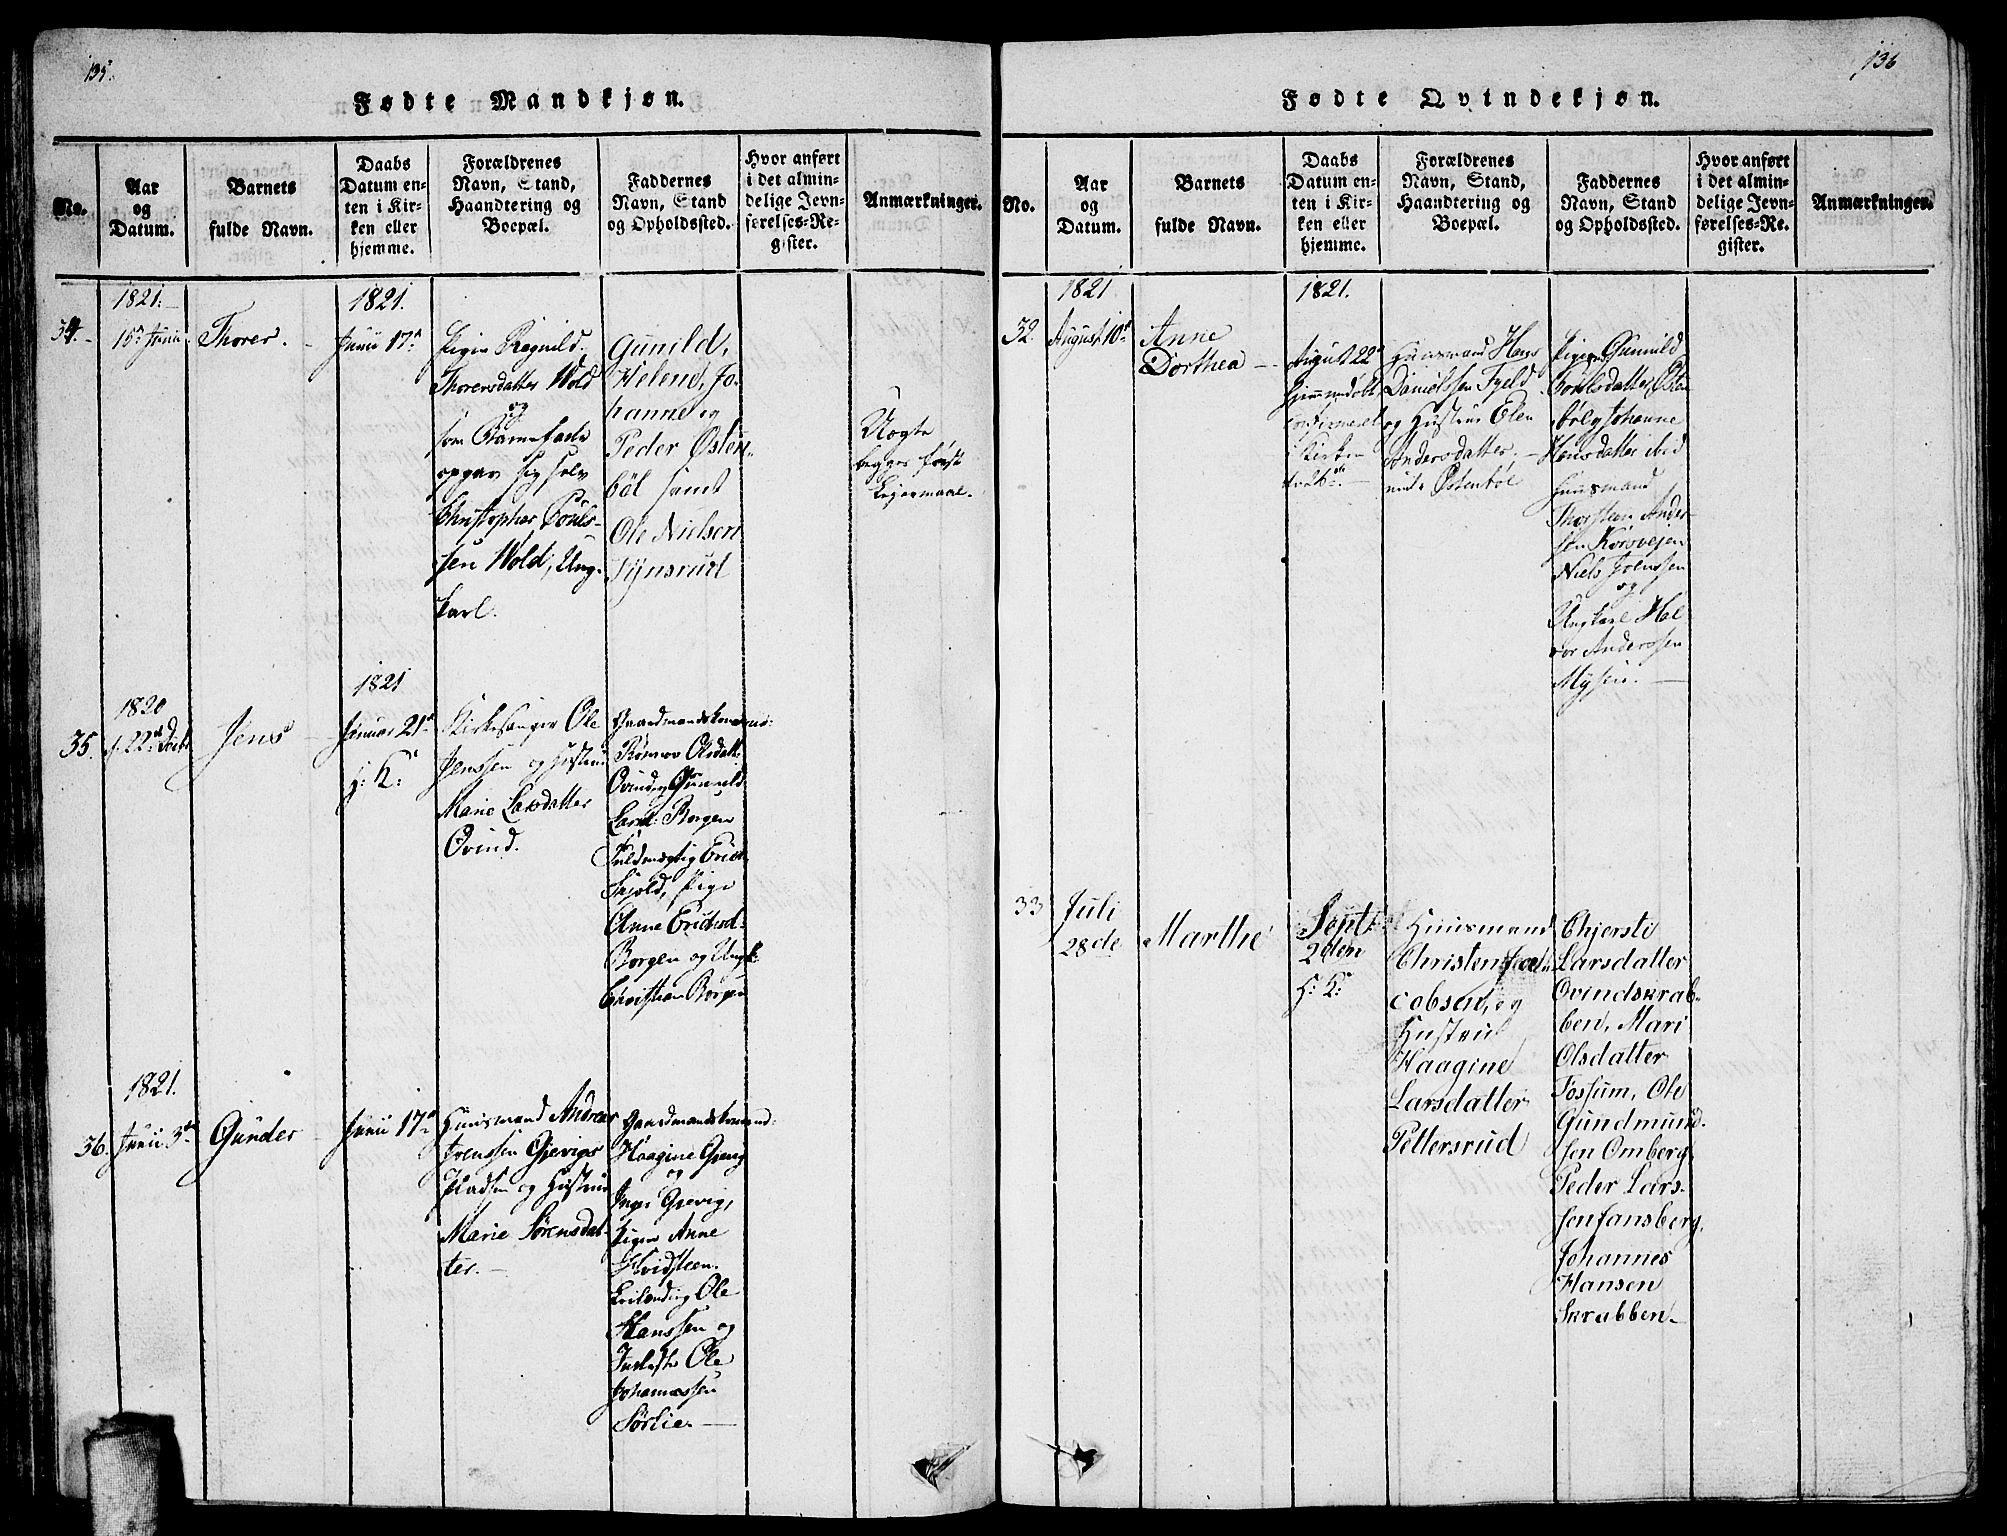 135.
Fødte Mandkjøn.
No.
Aar
og
Datum.
Barnets
fulde Navn.
Daabs
Datum en-
ten i Kir-
ken eller
hjemme.
Forældrenes
Navn, Stand,
Haandtering og
Boepæl.
Faddernes
Navn, Stand
og Opholdssted.
Hvor anført
i det almin-
delige Jevn-
førelses-Re-
gister.
Anmærkninger.
34.
1821.
15de Junii
Thorer.
1821.
Junii 17de
Pigen Ragnild
Thorersdatter Wold
og
som Barnefader
opgav sig selv
Christopher Pouls-
sen Wold, Ung-
karl.
Gunild,
Helene, Jo-
hanne og
Peder Østen-
böl samt
Ole Nielsen
Tynsrud
Uægte
begges første
Leiermaal.
35.
1820
d. 22de Decbr
Jens
1821
Januar 21de
H: K:
Kirkesanger Ole
Jenssen og Hustrue
Marie Larsdatter
Qvind.
Gaardmandskonerne:
Rønnov Olsdatt:
Qvind og Gunnild
Larsd: Borgen
Fuldmægtig Erich
Skjold, Pige
Anne Erichsd:
Borgen og Ungk:
Christian Borgen
36.
1821.
Junii 3de
Gunder
Junii 17de
Huusmand Andreas
Jrenssen Gjevigs
Pladsen og Hustrue
Marie Sørensdat-
ter.
Gaardmandskonerne:
Haagine Gjevig
og
Inger Gjevig,
Pigen Anne
Hvidsteen.
Ole
Hanssen og
Ole
Johannessen
Sørlie.
136
Fødte Qvindekjøn.
No.
Aar
og
Datum.
Barnets
fulde Navn.
Daabs
Datum en-
ten i Kir-
ken eller
hjemme.
Forældrenes
Navn, Stand,
Haandtering og
Boepæl.
Faddernes
Navn, Stand
og Opholdssted.
Hvor anført
i det almin-
delige Jevn-
førelses-Re-
gister.
Anmærkninger.
32.
1821
August 10de
Anne
Dorthea
1821.
August 22de
hjemmedøbt
confirmeret
i Kirken
Huusmand Hans
Danielssen Fjeld
og Hustrue Elen
Andersdatter.
under Østenböl
Pigerne Gunnild
Poulsdatter Østen-
böl og Johanne
Hansdatter ibid
Huusmand
Thorsteen Ander-
sen Korsvejen
Niels
og
Ungkarl Hal-
vor Anderssen
Mysen.
33
Juli
28de
Marthe
Septbr
2den
H: K:
Huusmand
Christen Ja-
cobsen, og
Hustrue
Haagine
Larsdatter
Pettersrud
Chjersti
Larsdatter
Qvindskrab-
ben, Mari
Olsdatter
Fossum, Ole
Gundmund-
sen Omberg
Peder Lars-
sen Fansberg
Johannes
Hansen
Skrabben.